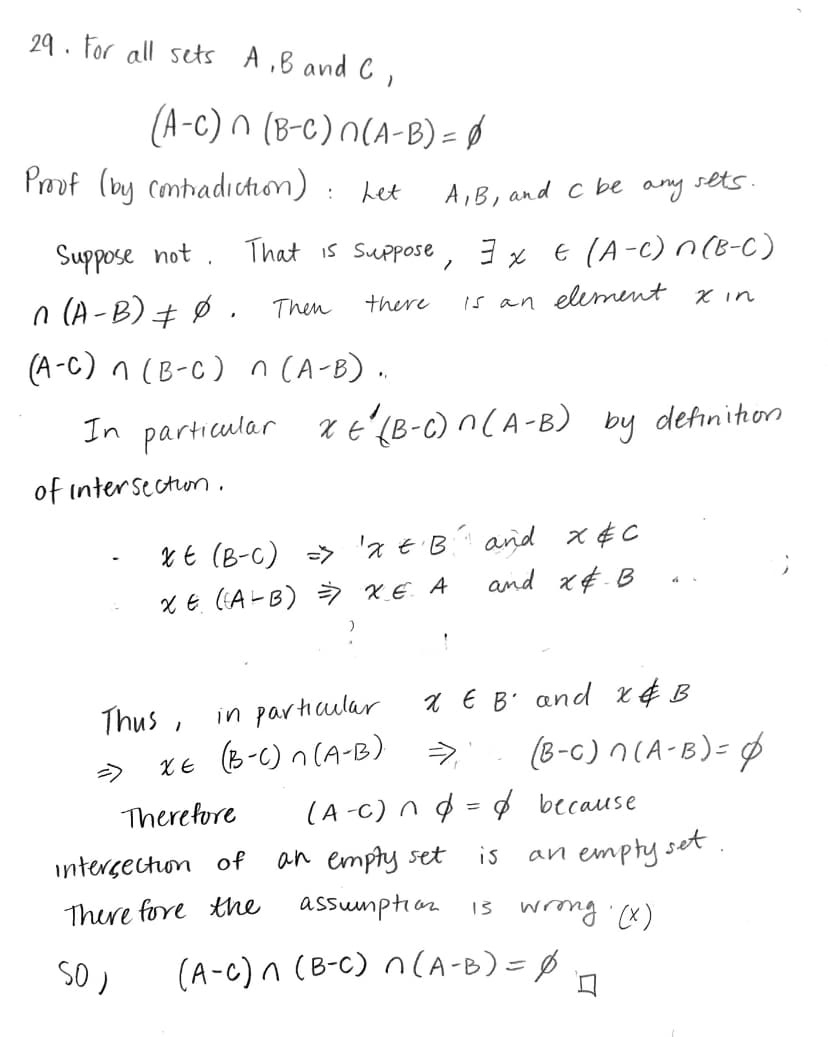 29. For all sets A, B and C,
(A-C) ∩ (B-C) ∩ (A-B) = ∅
Proof (by contradiction) : Let A, B, and C be any sets.
Suppose not. That is suppose, ∃ x ∈ (A-C) ∩ (B-C)
∩ (A-B) ≠ ∅. Then there is an element x in
(A-C) ∩ (B-C) ∩ (A-B).
In particular x ∈ (B-C) ∩ (A-B) by definition
of intersection.
x ∈ (B-C) ⇒ x ∈ B and x ∉ C
x ∈ (A-B) ⇒ x ∈ A and x ∉ B
Thus, in particular x ∈ B and x ∉ B
⇒ x ∈ (B-C) ∩ (A-B) ⇒ (B-C) ∩ (A-B) = ∅
Therefore (A-C) ∩ ∅ = ∅ because
intersection of an empty set is an empty set.
Therefore the assumption is wrong. (x)
So, (A-C) ∩ (B-C) ∩ (A-B) = ∅ □